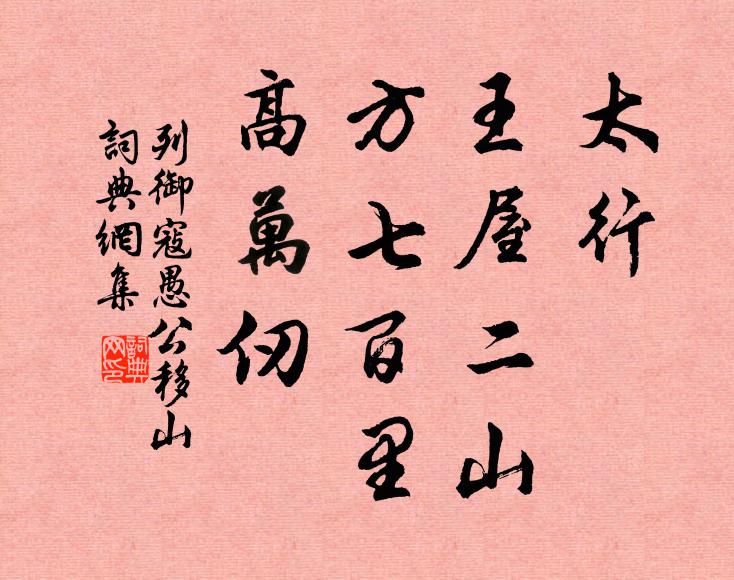 太行
王屋二山
方七百里
高萬仞
列御寇愚公移山
詞典網集
詞典
网印